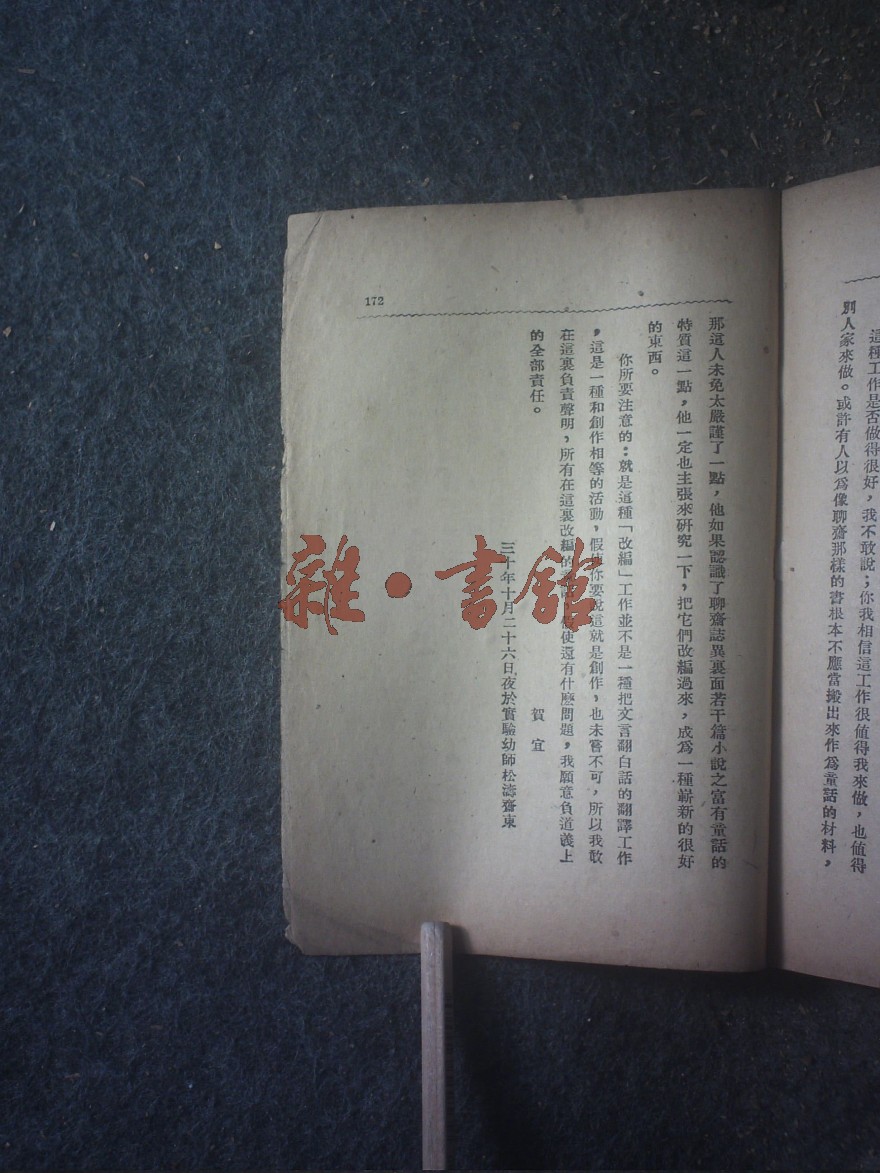 這種工作是否做得很好，我不敢說；你我相信這工作很值得我來做，也值得
別人家來做。或許有人以爲像聊齋那樣的書根本不應當搬出來作爲童話的材料，
172
那這人未免太嚴謹了一點，他如果認識了聊齋誌異裏面若干篇小說之富有童話的
特質這一點，他一定也主張來研究一下，把它們改編過來，成爲一種嶄新的很好
的東西。
你所要注意的：就是這種「改編」工作並不是一種把文言翻白話的翻譯工作
，這是一種和創作相等的活動，假使你要說這就是創作，也未嘗不可，所以我敢
在這裏負責聲明，所有在這裏改編的 使還有什麽問題，我願意負道義上
的全部責任。
賀宜
三十年十月二十六日夜於實驗幼師松濤齋東
雜·書館